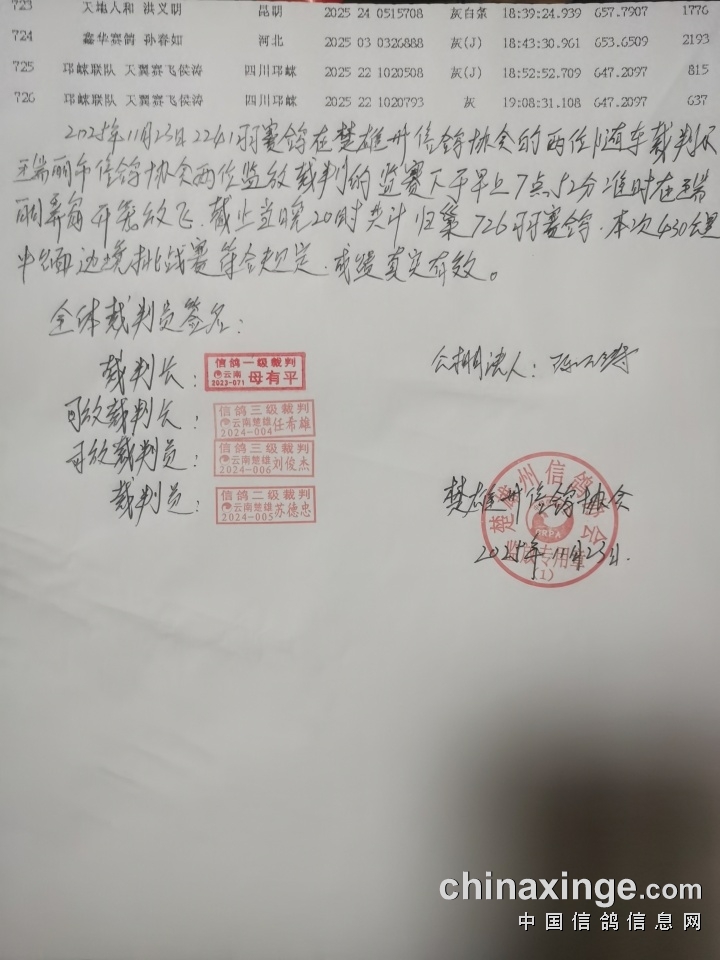 723 天地人和 洪义明 昆明 2025 24 0515708 灰白条 18:39:24.939 657.7907 1776
724 鑫华赛鸽 孙春如 河北 2025 03 0326888 灰(J) 18:43:30.961 653.6509 2193
725 邛崃联队 天翼赛飞侯涛 四川邛崃 2025 22 1020508 灰(J) 18:52:52.709 647.2097 815
726 邛崃联队 天翼赛飞侯涛 四川邛崃 2025 22 1020793 灰 19:08:31.108 647.2097 637
2025年11月23日2241羽赛鸽在楚雄州信鸽协会的两位随车裁判及
瑞丽市信鸽协会两位监放裁判的监赛下于早上7点52分准时在瑞
丽弄岛开笼放飞.截止当晚20时共计归巢726羽赛鸽.本次430公里
中缅边境挑战赛符合规定.成绩真实有效。
全体裁判员签名:
裁判长: 信鸽一级裁判 云南 2023-071 母有平
司放裁判长: 信鸽三级裁判 云南楚雄 2024-004 任希雄
司放裁判员: 信鸽三级裁判 云南楚雄 2024-006 刘俊杰
裁判员: 信鸽二级裁判 云南楚雄 2024-005 苏德忠
公棚法人:
楚雄州信鸽协会
2025年11月23日.
楚雄州信鸽协会
CRPA
专用章
(1)
chinaxinge.com
中国信鸽信息网